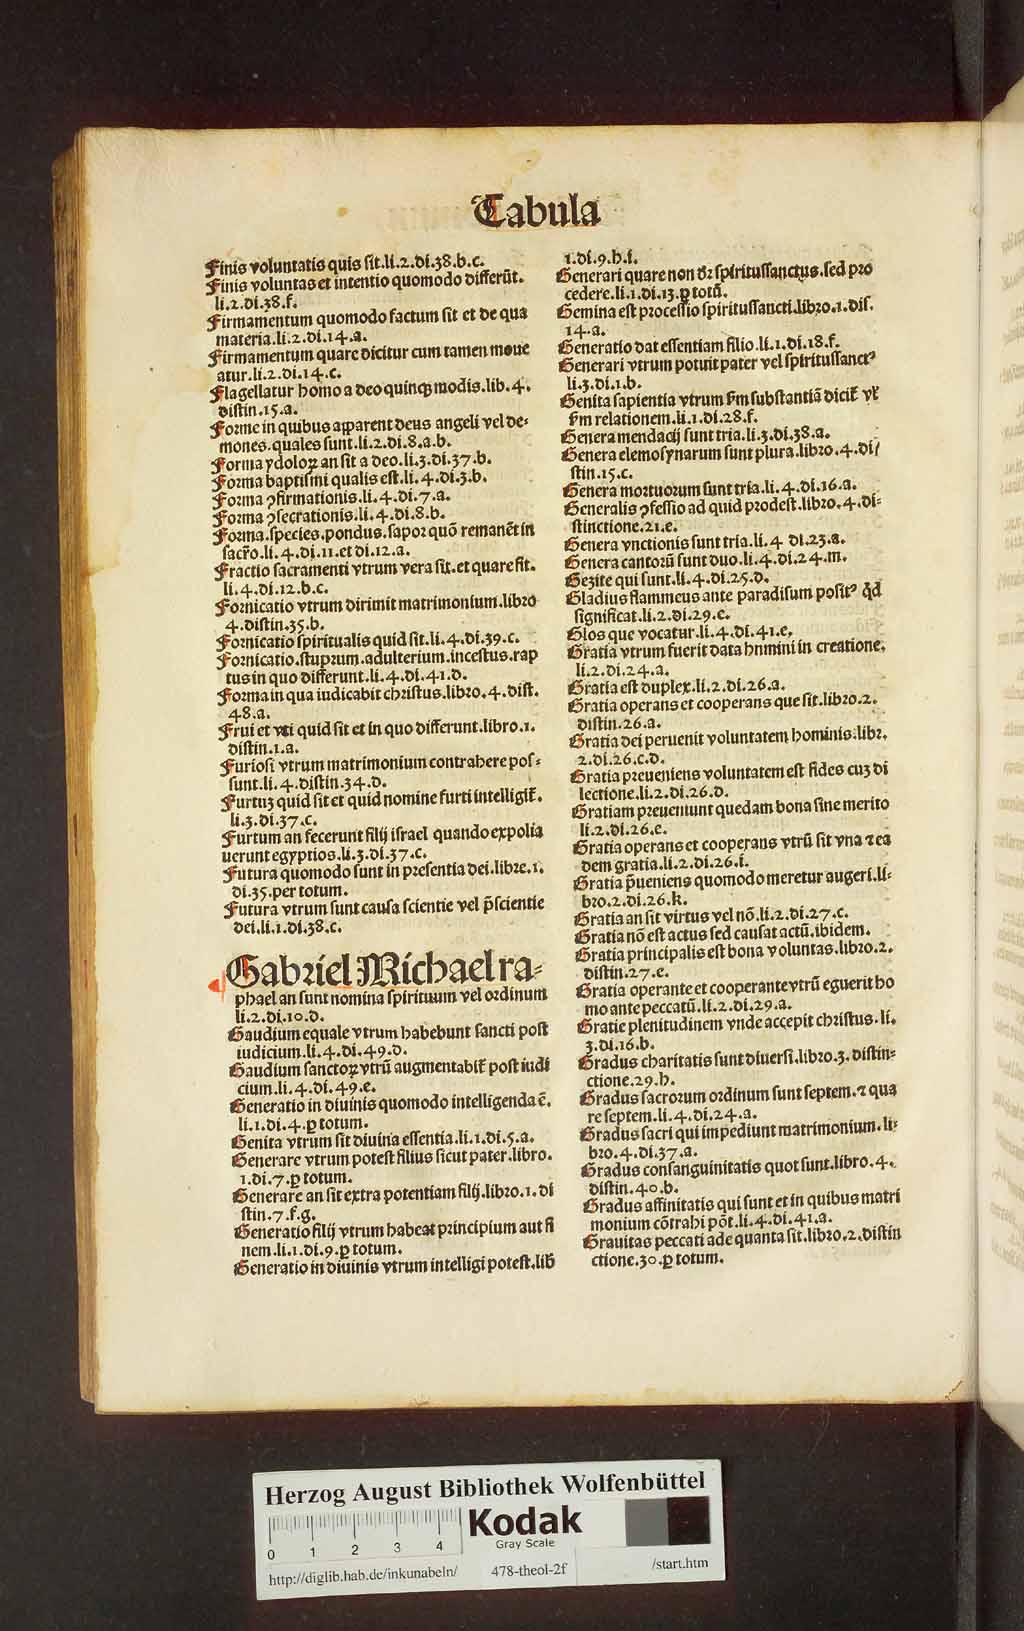 Tabula
Finis voluntatis quis sit.li.2.di.38.b.c.
Finis voluntas et intentio quomodo differūt.
li.2.di.38.f.
Firmamentum quomodo factum sit et de qua
materia.li.2.di.14.a.
Firmamentum quare dicitur cum tamen moue
atur.li.2.di.14.c.
Flagellatur homo a deo quinqꝫ modis.lib.4.
distin.15.a.
Forme in quibus apparent deus angeli vel de-
mones.quales sunt.li.2.di.8.a.b.
Forma ydoloꝝ an sit a deo.li.3.di.37.b.
Forma baptismi qualis est.li.4.di.3.b.
Forma ꝯfirmationis.li.4.di.7.a.
Forma ꝯsecrationis.li.4.di.8.b.
Forma.species.pondus.sapor quō remanēt in
sacr̄o.li.4.di.11.et di.12.a.
Fractio sacramenti vtrum vera sit.et quare fit.
li.4.di.12.b.c.
Fornicatio vtrum dirimit matrimonium.libro
4.distin.35.b.
Fornicatio spiritualis quid sit.li.4.di.39.c.
Fornicatio.stuprum.adulterium.incestus.rap
tus in quo differunt.li.4.di.41.d.
Forma in qua iudicabit christus.libro.4.dist.
48.a.
Frui et vti quid sit et in quo differunt.libro.1.
distin.1.a.
Furiosi vtrum matrimonium contrahere pos-
sunt.li.4.distin.34.d.
Furtuꝫ quid sit et quid nomine furti intelligit̄.
li.3.di.37.c.
Furtum an fecerunt filij israel quando expolia
uerunt egyptios.li.3.di.37.c.
Futura quomodo sunt in presentia dei.libre.1.
di.35.per totum.
Futura vtrum sunt causa scientie vel p̄scientie
dei.li.1.di.38.c.
Gabriel Michael ra-
phael an sunt nomina spirituum vel ordinum
li.2.di.10.d.
Gaudium equale vtrum habebunt sancti post
iudicium.li.4.di.49.d.
Gaudium sanctoꝝ vtrū augmentabit̄ post iudi
cium.li.4.di.49.e.
Generatio in diuinis quomodo intelligenda ē.
li.1.di.4.ꝑ totum.
Genita vtrum sit diuina essentia.li.1.di.5.a.
Generare vtrum potest filius sicut pater.libro.
1.di.7.ꝑ totum.
Generare an sit extra potentiam filij.libro.1.di
stin.7.f.g.
Generatio filij vtrum habeat principium aut fi
nem.li.1.di.9.ꝑ totum.
Generatio in diuinis vtrum intelligi potest.lib̄
1.di.9.h.i.
Generari quare non dꝛ spiritussanctus.sed pro
cedere.li.1.di.13.ꝑ totū.
Gemina est processio spiritussancti.libro.1.dis.
14.a.
Generatio dat essentiam filio.li.1.di.18.f.
Generari vtrum potuit pater vel spiritussanctꝰ
li.3.di.1.b.
Genita sapientia vtrum ẜm substantiā dicit̄ vł
ẜm relationem.li.1.di.28.f.
Genera mendacij sunt tria.li.3.di.38.a.
Genera elemosynarum sunt plura.libro.4.di/
stin.15.c.
Genera mortuorum sunt tria.li.4.di.16.a.
Generalis ꝯfessio ad quid prodest.libro.4.di-
stinctione.21.e.
Genera vnctionis sunt tria.li.4 di.23.a.
Genera cantorū sunt duo.li.4.di.24.m.
Gezite qui sunt.li.4.di.25.d.
Gladius flammeus ante paradisum positꝰ qd̄
significat.li.2.di.29.c.
Glos que vocatur.li.4.di.41.e.
Gratia vtrum fuerit data hnmini in creatione.
li.2.di.24.a.
Gratia est duplex.li.2.di.26.a.
Gratia operans et cooperans que sit.libro.2.
distin.26.a.
Gratia dei peruenit voluntatem hominis.libr.
2.di.26.c.d.
Gratia preueniens voluntatem est fides cuꝫ di
lectione.li.2.di.26.d.
Gratiam preueniunt quedam bona sine merito
li.2.di.26.e.
Gratia operans et cooperans vtrū sit vna ⁊ ea
dem gratia.li.2.di.26.i.
Gratia p̄ueniens quomodo meretur augeri.li-
bro.2.di.26.k.
Gratia an sit virtus vel nō.li.2.di.27.c.
Gratia nō est actus sed causat actū.ibidem.
Gratia principalis est bona voluntas.libro.2.
distin.27.e.
Gratia operante et cooperante vtrū eguerit ho
mo ante peccatū.li.2.di.29.a.
Gratie plenitudinem vnde accepit christus.li.
3.di.16.b.
Gradus charitatis sunt diuersi.libro.3.distin-
ctione.29.b.
Gradus sacrorum ordinum sunt septem.⁊ qua
re septem.li.4.di.24.a.
Gradus sacri qui impediunt matrimonium.li-
bro.4.di.37.a.
Gradus consanguinitatis quot sunt.libro.4.
distin.40.b.
Gradus affinitatis qui sunt et in quibus matri
monium cōtrahi pōt.li.4.di.41.a.
Grauitas peccati ade quanta sit.libro.2.distin
ctione.30.ꝑ totum.
Herzog August Bibliothek Wolfenbüttel
Kodak
Gray Scale
0 1 2 3 4
http://diglib.hab.de/inkunabeln/ 478-theol-2f /start.htm